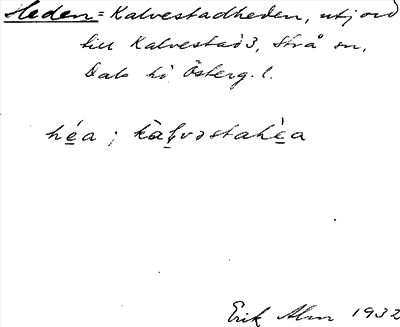 Heden = Kalvestadheden, utjord
till Kalvestad 3, Strå sn,
Dals hd Österg. l.
héa ; kàḷvəstahèa
Erik Alm 1932